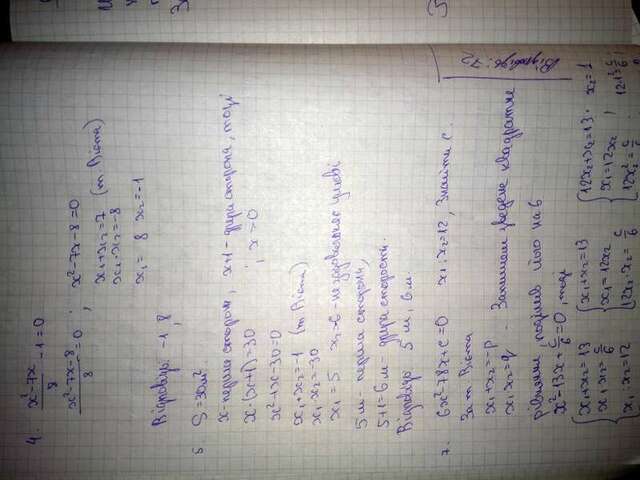 4. x²-7x/8 - 1 = 0
x²-7x-8/8 = 0 ; x²-7x-8=0
x₁+x₂=7 (т. Вієта)
x₁·x₂=-8
x₁= 8 x₂=-1
Відповідь: -1, 8
5. S=30м²
x-перша сторона, x+1-друга сторона, тоді
x·(x+1)=30 ; x>0
x²+x-30=0
x₁+x₂=-1 (т. Вієта)
x₁·x₂=-30
x₁=5 x₂=-6 - не задовольняє умові
5 м - перша сторона,
5+1=6 м - друга сторона.
Відповідь: 5 м, 6 м.
7. 6x²-78x+c=0 x₁:x₂=12, Знайти c.
За т. Вієта
x₁+x₂=-p
x₁·x₂=q. Запишемо зведене квадратне
рівняння, поділив його на 6
x²-13x+c/6=0, тоді
x₁+x₂=13
x₁·x₂=c/6
x₁:x₂=12
x₁+x₂=13
x₁=12x₂
12x₂·x₂=c/6
12x₂+x₂=13
x₁=12x₂
12x₂²=c/6
x₂=1
12·1²=c/6
Відповідь: 72